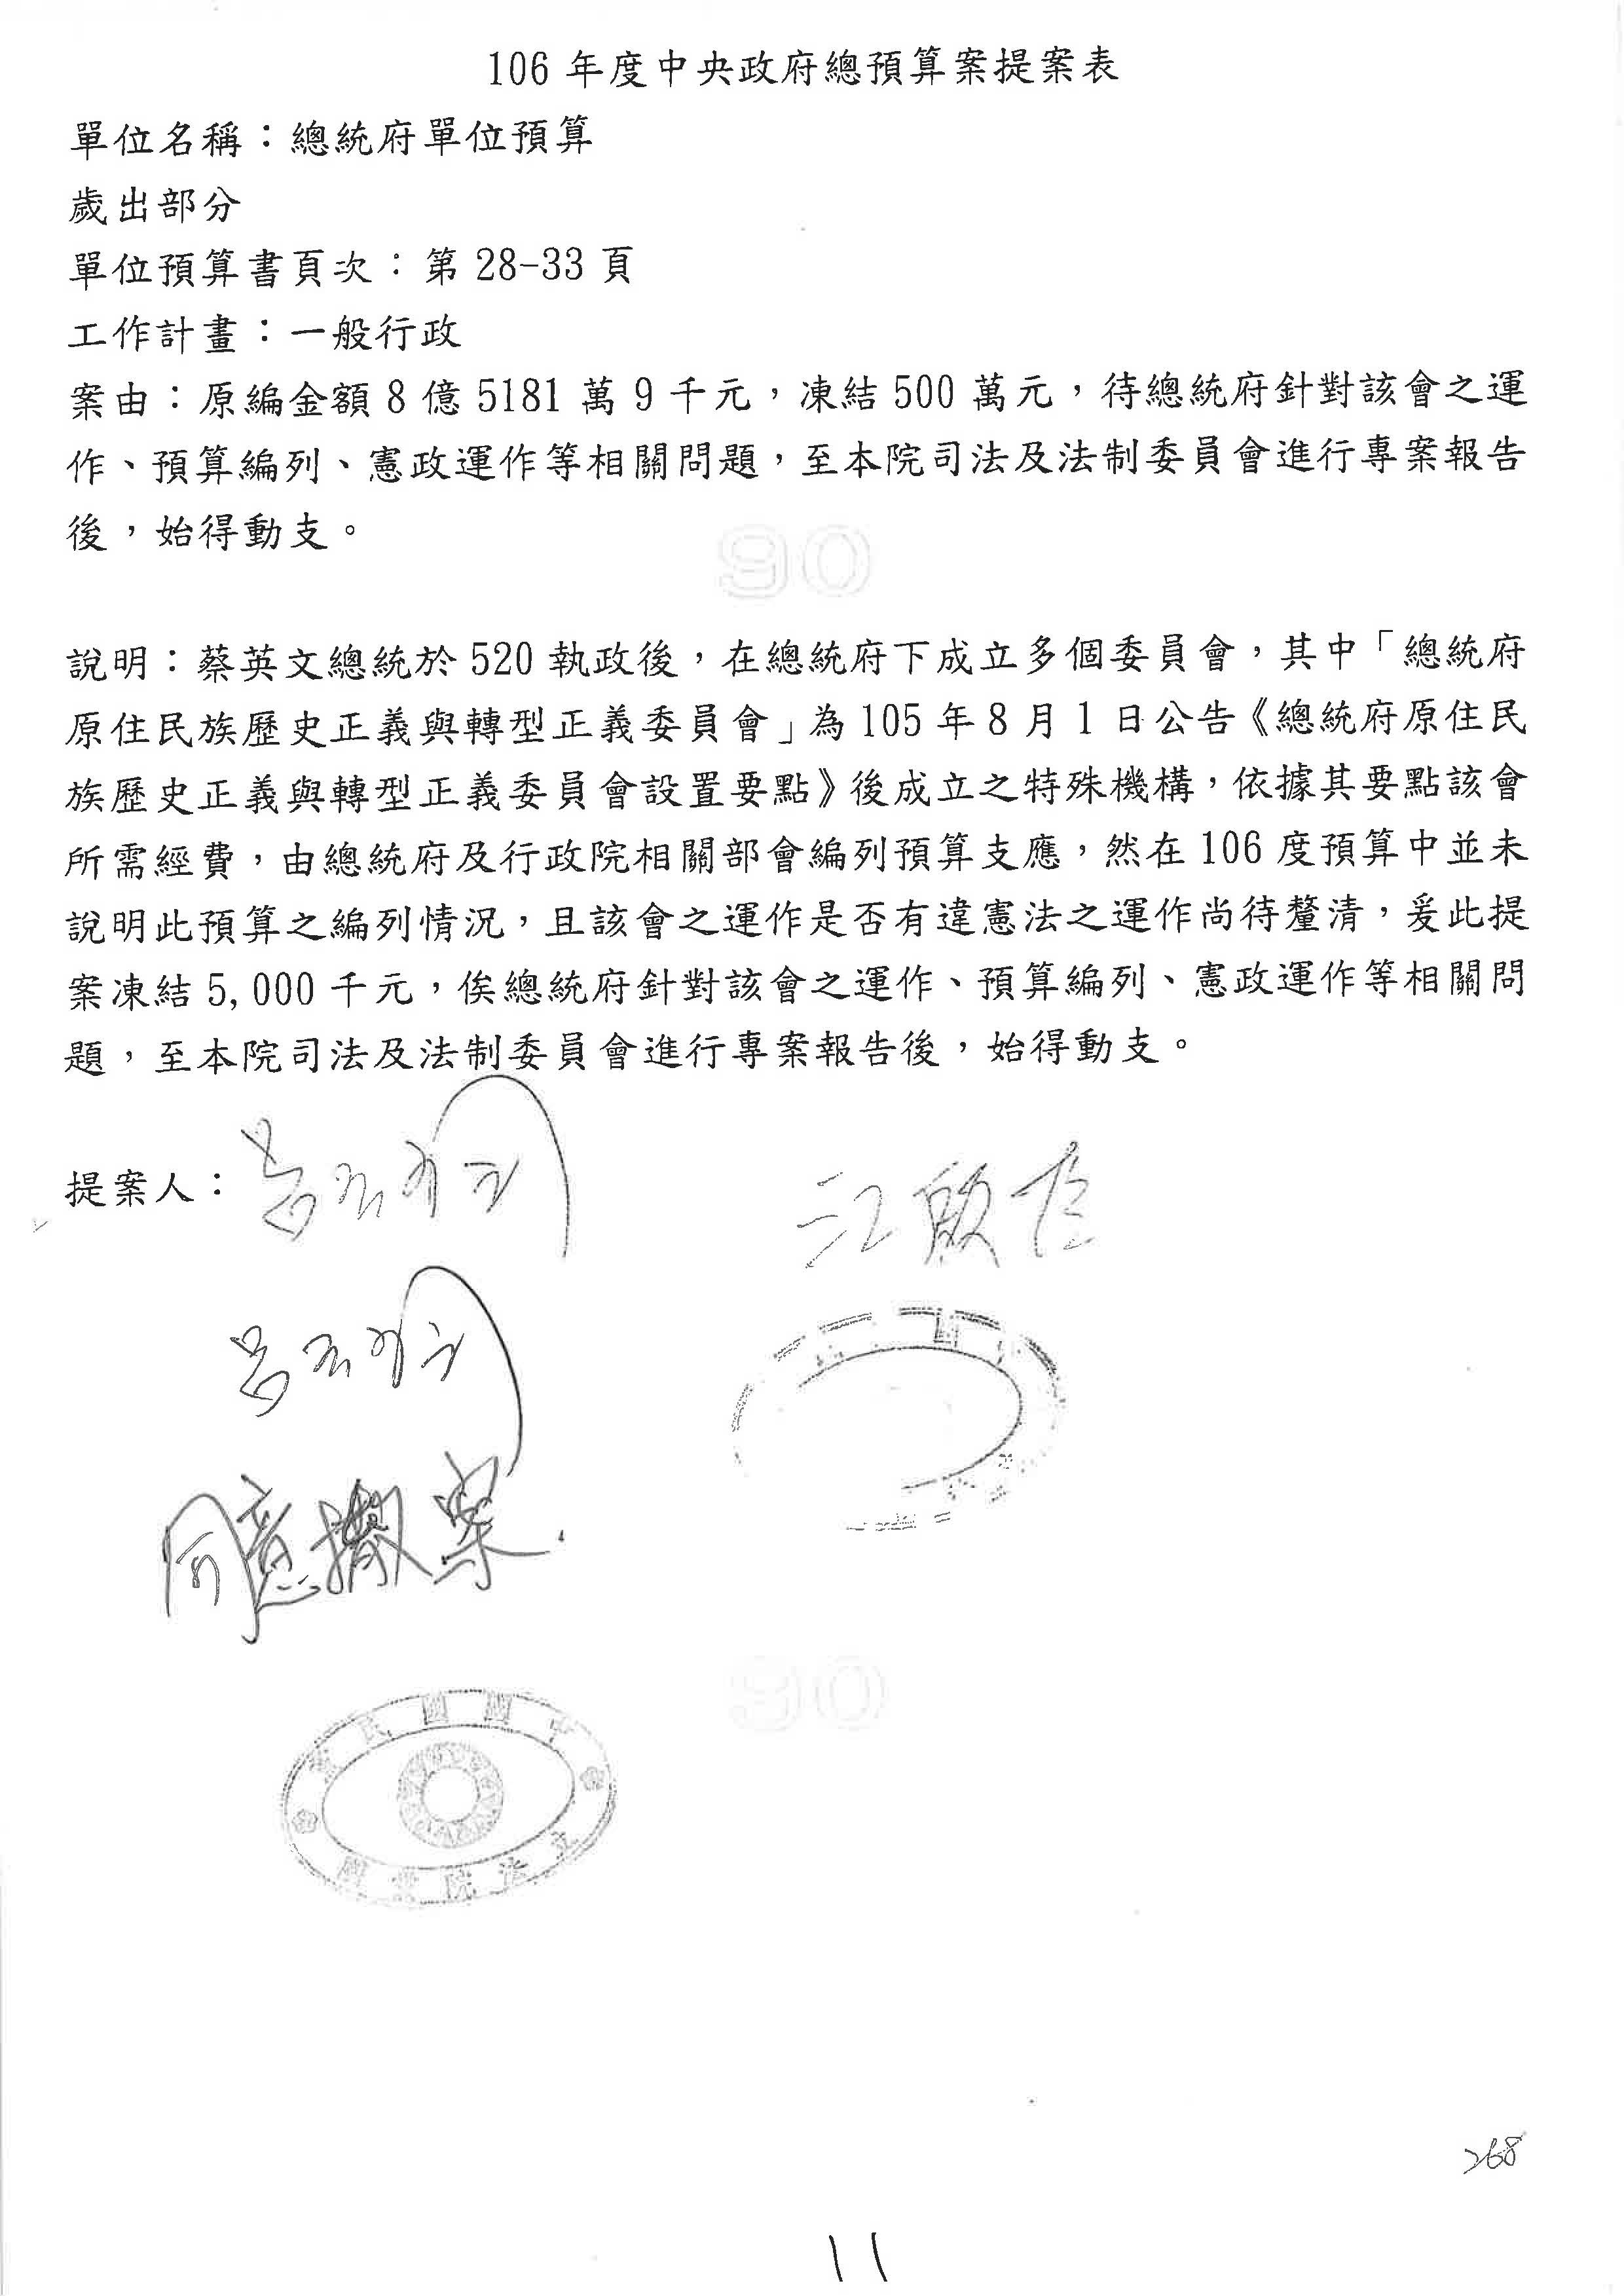 106 年度中央政府總預算案提案表
單位名稱：總統府單位預算
歲出部分
單位預算書頁次：第 28-33 頁
工作計畫：一般行政
案由：原編金額 8 億 5181 萬 9 千元，凍結 500 萬元，待總統府針對該會之運
作、預算編列、憲政運作等相關問題，至本院司法及法制委員會進行專案報告
後，始得動支。
90
說明：蔡英文總統於 520 執政後，在總統府下成立多個委員會，其中「總統府
原住民族歷史正義與轉型正義委員會」為 105 年 8 月 1 日公告《總統府原住民
族歷史正義與轉型正義委員會設置要點》後成立之特殊機構，依據其要點該會
所需經費，由總統府及行政院相關部會編列預算支應，然在 106 度預算中並未
說明此預算之編列情況，且該會之運作是否有違憲法之運作尚待釐清，爰此提
案凍結 5,000 千元，俟總統府針對該會之運作、預算編列、憲政運作等相關問
題，至本院司法及法制委員會進行專案報告後，始得動支。
提案人：
江啟臣
同意撤案.
90
268
11